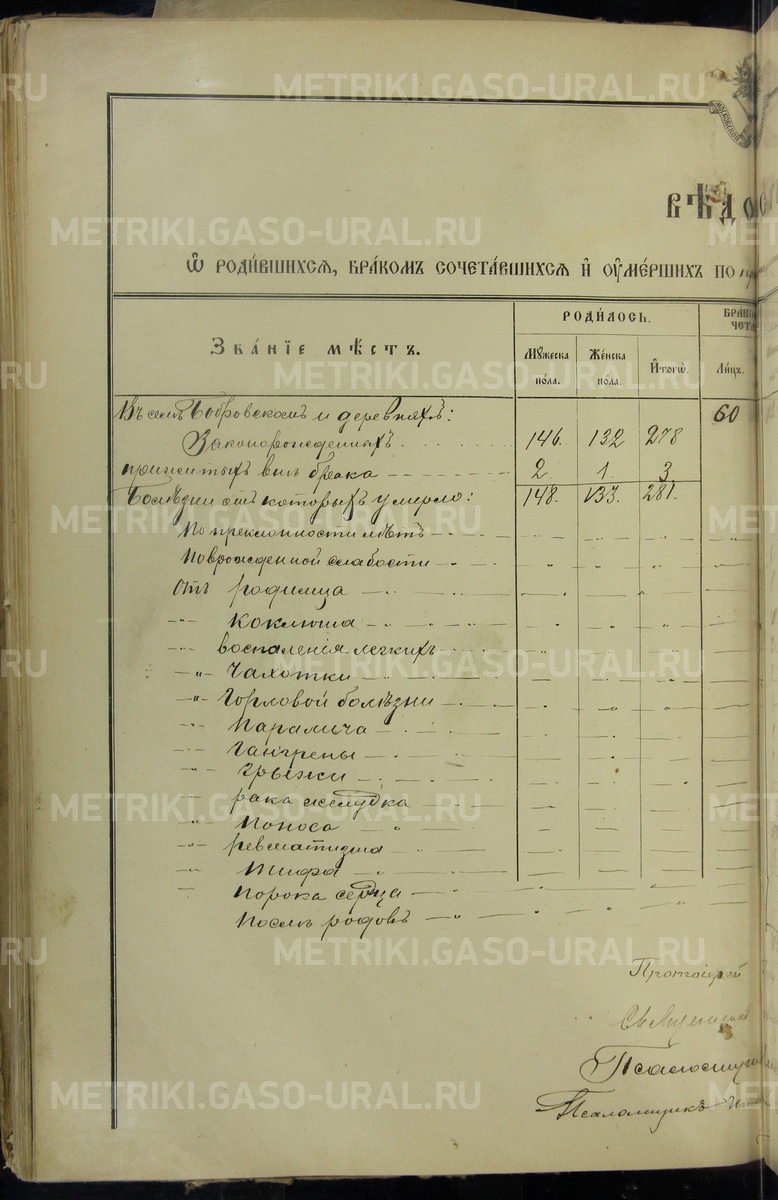 METRIKI.GASO-URAL.RU
МОСКОВСКОЙ
ВѢ́ДОС
Ѽ РОДИ́ВШИХСѦ, БРА́КОМЪ СОЧЕТА́ВШИХСѦ И҆ ОУ҆МЕ́РШИХЪ ПО
ЗВА́НІЕ МѢ́СТЪ.
РОДИ́ЛОСЬ.
БРАКО
ЧЕТА
МꙊЖЕСКА ПО́ЛА.
ЖЕ́НСКА ПО́ЛА.
И҆ТОГѠ̀.
ЛИ́ЦЪ.
Въ селѣ Бобровскомъ и деревняхъ: 60
Законорожденныхъ 146. 132 278
прижитыхъ внѣ брака 2. 1. 3
Болѣзни отъ которыхъ умерло: 148. 133. 281.
По преклонности лѣтъ
По врожденной слабости
Отъ родимца
-"- Коклюша
-"- воспаленія легкихъ
-"- Чахотки
-"- Горловой болѣзни
-"- Паралича
-"- Гангрены
-"- Грыжи
рака желудка
-"- Поноса
-"- ревматизма
-"- Тифа
-"- Порока сердца
Послѣ родовъ
Протоіерей
Священник
Псаломщи
Псаломщикъ